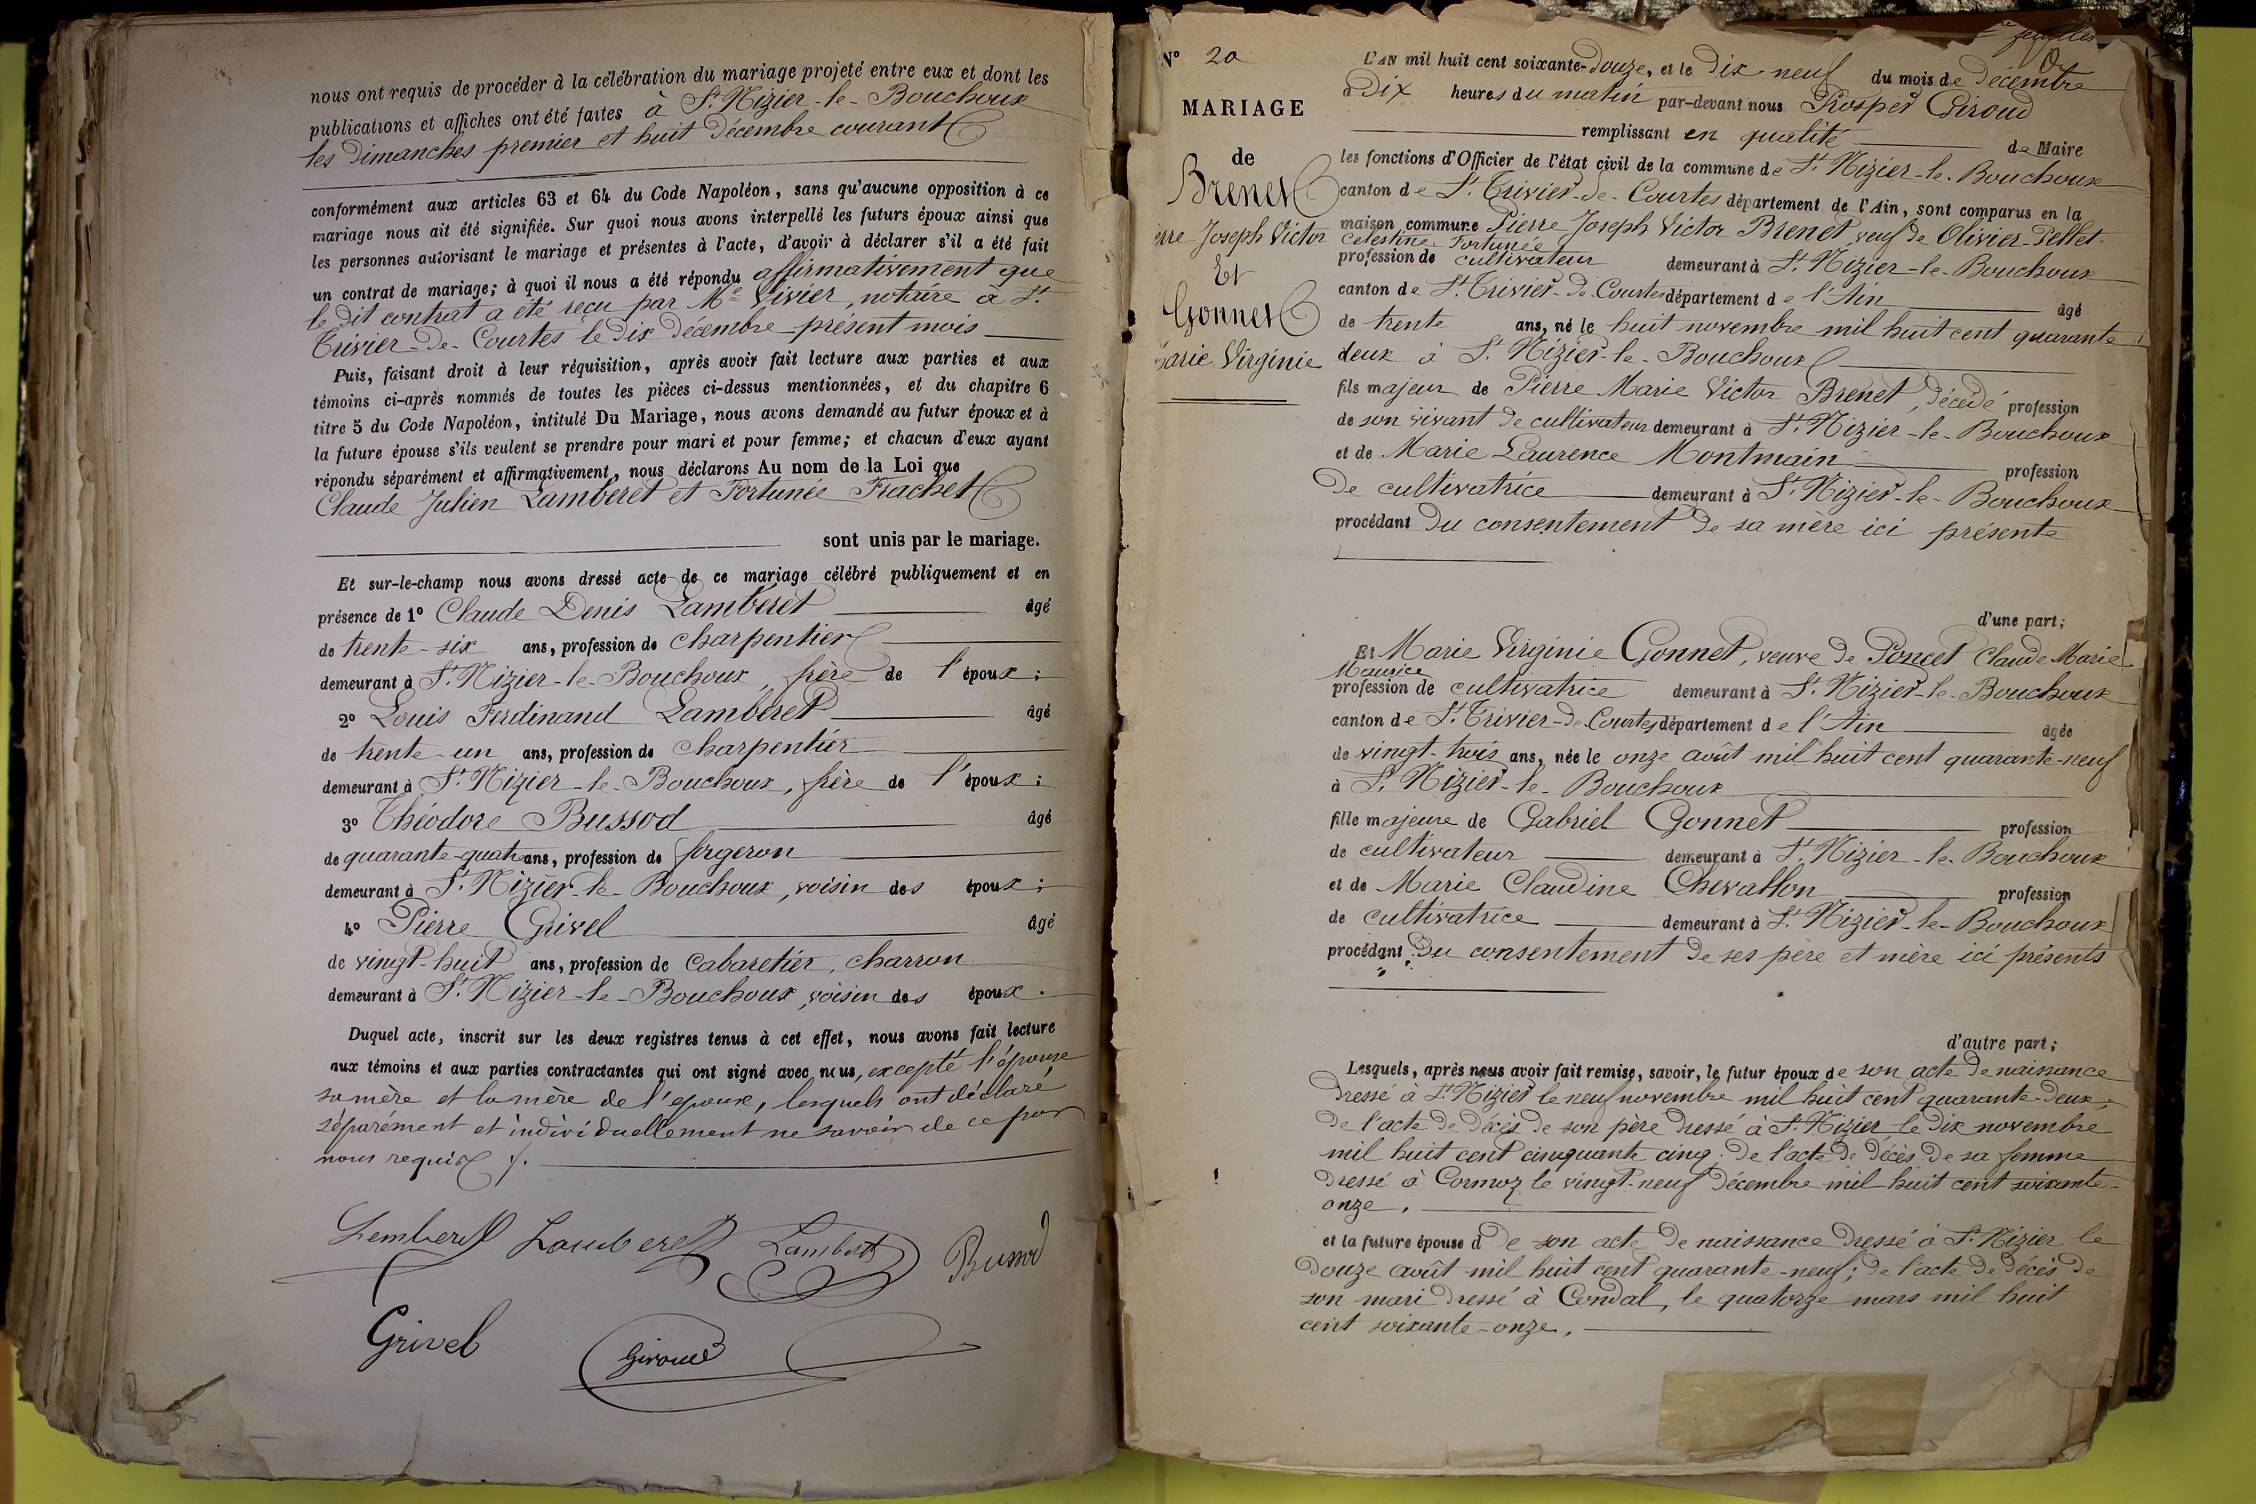 nous ont requis de procéder à la célébration du mariage projeté entre eux et dont les
publications et affiches ont été faites à St. Nizier-le-Bouchoux
les dimanches premier et huit décembre courant
conformément aux articles 63 et 64 du Code Napoléon, sans qu'aucune opposition à ce
mariage nous ait été signifiée. Sur quoi nous avons interpellé les futurs époux ainsi que
les personnes autorisant le mariage et présentes à l'acte, d'avoir à déclarer s'il a été fait
un contrat de mariage; à quoi il nous a été répondu affirmativement que
le dit contrat a été reçu par Me Vivier, notaire à St.
Trivier-de-Courtes le dix décembre présent mois
Puis, faisant droit à leur réquisition, après avoir fait lecture aux parties et aux
témoins ci-après nommés de toutes les pièces ci-dessus mentionnées, et du chapitre 6
titre 5 du Code Napoléon, intitulé Du Mariage, nous avons demandé au futur époux et à
la future épouse s'ils veulent se prendre pour mari et pour femme; et chacun d'eux ayant
répondu séparément et affirmativement, nous déclarons Au nom de la Loi que
Claude Julien Lambéret et Fortunée Frachet
sont unis par le mariage.
Et sur-le-champ nous avons dressé acte de ce mariage célébré publiquement et en
présence de 1° Claude Denis Lambéret âgé
de trente-six ans, profession de charpentier
demeurant à St. Nizier-le-Bouchoux, frère de l'époux;
2° Louis Ferdinand Lambéret âgé
de trente-un ans, profession de charpentier
demeurant à St. Nizier-le-Bouchoux, frère de l'époux;
3° Théodore Bussod âgé
de quarante-quatre ans, profession de forgeron
demeurant à St. Nizier-le-Bouchoux, voisin des époux;
4° Pierre Grivel âgé
de vingt-huit ans, profession de cabaretier, charron
demeurant à St. Nizier-le-Bouchoux, voisin des époux.
Duquel acte, inscrit sur les deux registres tenus à cet effet, nous avons fait lecture
aux témoins et aux parties contractantes qui ont signé avec nous, excepté l'épouse
sa mère et la mère de l'époux, lesquels ont déclaré
séparément et individuellement ne savoir de ce par
nous requis ./.
Lamberet Lamberet Lamberet Bussod
Grivel Giroud
N° 20
MARIAGE
de
Brenet
erre Joseph Victor
Et
Gonnet
arie Virginie
L'AN mil huit cent soixante-douze, et le dix-neuf du mois de décembre
à dix heures du matin par-devant nous Prosper Giroud
remplissant en qualité de Maire
les fonctions d'Officier de l'état civil de la commune de St. Nizier-le-Bouchoux
canton de St. Trivier-de-Courtes département de l'Ain, sont comparus en la
maison commune Pierre Joseph Victor Brenet, veuf de Olivier-Pellet
Célestine Fortunée
profession de cultivateur demeurant à St. Nizier-le-Bouchoux
canton de St. Trivier-de-Courtes département de l'Ain âgé
de trente ans, né le huit novembre mil huit cent quarante
deux à St. Nizier-le-Bouchoux
fils majeur de Pierre Marie Victor Brenet, décédé profession
de son vivant de cultivateur demeurant à St. Nizier-le-Bouchoux
et de Marie Laurence Montmain profession
de cultivatrice demeurant à St. Nizier-le-Bouchoux
procédant du consentement de sa mère ici présente
d'une part;
Et Marie Virginie Gonnet, veuve de Poncet Claude Marie
Maurice
profession de cultivatrice demeurant à St. Nizier-le-Bouchoux
canton de St. Trivier-de-Courtes département de l'Ain âgée
de vingt-trois ans, née le onze août mil huit cent quarante-neuf
à St. Nizier-le-Bouchoux
fille majeure de Gabriel Gonnet profession
de cultivateur demeurant à St. Nizier-le-Bouchoux
et de Marie Claudine Chevallon profession
de cultivatrice demeurant à St. Nizier-le-Bouchoux
procédant du consentement de ses père et mère ici présents
d'autre part;
Lesquels, après nous avoir fait remise, savoir, le futur époux de son acte de naissance
dressé à St. Nizier le neuf novembre mil huit cent quarante-deux;
de l'acte de décès de son père dressé à St. Nizier le dix novembre
mil huit cent cinquante cinq; de l'acte de décès de sa femme
dressé à Cormoz le vingt-neuf décembre mil huit cent soixante-
onze,
et la future épouse d de son acte de naissance dressé à St. Nizier le
douze août mil huit cent quarante-neuf; de l'acte de décès de
son mari dressé à Condal, le quatorze mars mil huit
cent soixante-onze,